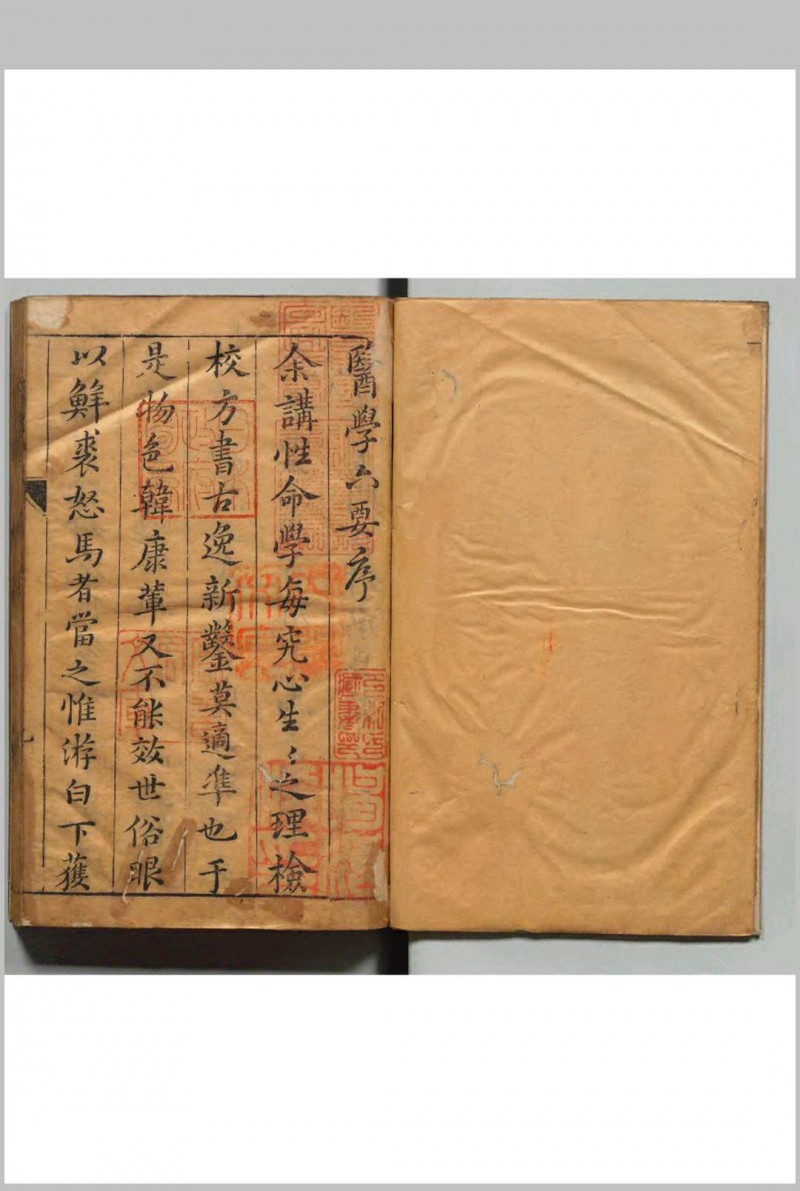 醫學六要序
余講性命學每究心生〻之理檢
校方書古逸新鑿莫適準也于
是物色韓康輩又不能效世俗眼
以鮮裘怒馬者當之惟游白下獲